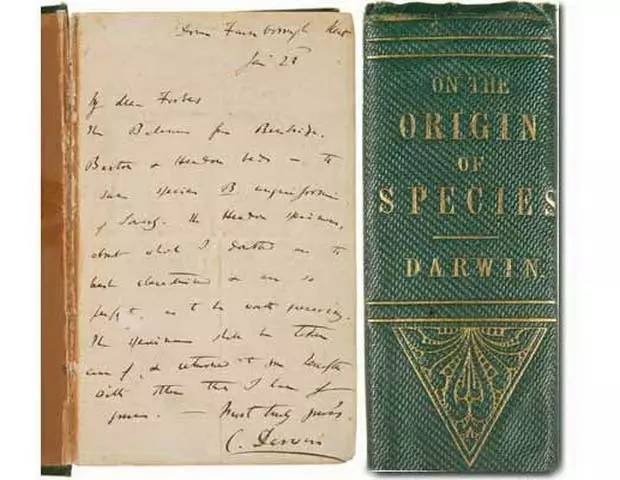 Down Farnborough Kent
Jan
My dear Forbes
The Balanus from Bembridge,
Barton & Headon beds is the
same species B unguiformis
of Sowerby. The Headon specimens,
about which I doubted are the
best characterised & are so
perfect, as to be worth preserving.
The specimens shall be taken
care of, & returned to you together
with others that I have of
yours. — Most truly yours
C. Darwin
ON THE
ORIGIN
OF
SPECIES
DARWIN.